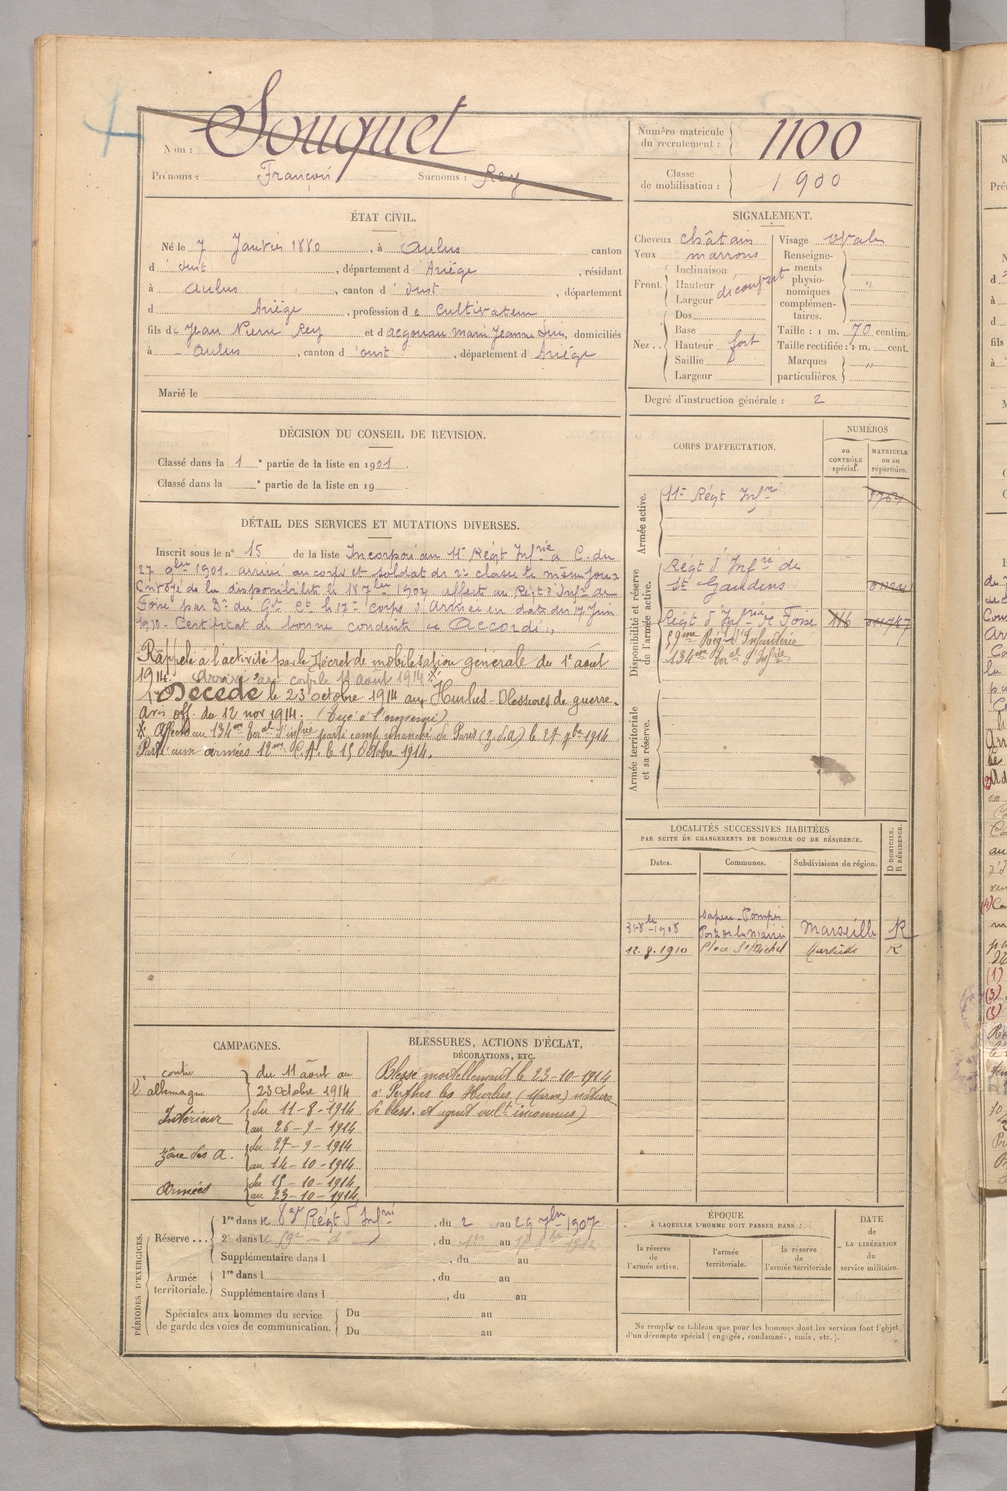 Nom : Souquet
Prénoms : François Surnoms : Rey
Numéro matricule du recrutement : 1100
Classe de mobilisation : 1900
ÉTAT CIVIL.
Né le 7 Janvier 1880, à Aulus canton
d'oust, département d'Ariége, résidant
à Aulus, canton d'oust, département
d Ariége, profession de Cultivateur
fils de Jean Pierre Rey et d' Marie Jeanne, domiciliés
à Aulus, canton d'oust, département d'Ariége
Marié le
SIGNALEMENT.
Cheveux châtain
Yeux marrons
Front. Inclinaison
Hauteur découvert
Largeur
Nez.. Dos
Base
Hauteur fort
Saillie
Largeur
Visage ovale
Renseignements physionomiques complémentaires. "
Taille : 1 m. 70 centim.
Taille rectifiée : 1 m. cent.
Marques particulières. "
Degré d'instruction générale : 2
DÉCISION DU CONSEIL DE REVISION.
Classé dans la 1e partie de la liste en 1901.
Classé dans la e partie de la liste en 19
DÉTAIL DES SERVICES ET MUTATIONS DIVERSES.
Inscrit sous le n° 15 de la liste Incorporé au 11e Régt Infrie à C. du
27 9bre 1901. arrivé au corps et soldat de 2e classe le même jour
Envoyé de la disponibilité le 18 7bre 1904. affecté au Régt d'Infie de
Foix par Don du Gal Ct le 17e Corps d'Armée en date du 17 Juin
1910 - Certificat de bonne conduite " Accordé "
Rappelé à l'activité par le Décret de mobilisation générale du 1er août
1914. Arrivé au corps le 11 août 1914 *
Décédé le 23 octobre 1914 aux Hurlus - Blessures de guerre.
Avis off. du 12 nov 1914. (Tué à l'ennemi)
* Affecté au 134me Terral d'Infie parti camp retranché de Paris (Z.d.A) le 27 7bre 1914
Parti aux armées 12me C.A. le 15 Octobre 1914.
CORPS D'AFFECTATION.
NUMÉROS
au CONTRÔLE spécial.
MATRICULE ou au répertoire.
Armée active.
11e Régt Infie
Disponibilité et réserve de l'armée active.
Régt d'Infie de
St Gaudens
Régt d'Infrie de Foix
59ème Régt d'Infanterie
134ème Terral d'Infie
Armée territoriale et sa réserve.
LOCALITÉS SUCCESSIVES HABITÉES
PAR SUITE DE CHANGEMENTS DE DOMICILE OU DE RÉSIDENCE.
Dates. Communes. Subdivisions de région. D DOMICILE. R RÉSIDENCE.
1908 Sapeur-Pompier Marseille R
12.8.1910 Place St Michel Marseille R
CAMPAGNES.
contre l'allemagne du 11 août au 23 Octobre 1914
Intérieur du 11-8-1914 au 26-9-1914
Zône des A. du 27-9-1914 au 14-10-1914
Armées du 15-10-1914 au 23-10-1914
BLESSURES, ACTIONS D'ÉCLAT, DÉCORATIONS, ETC.
Blessé mortellement le 23-10-1914
à Perthes les Hurlus (Marne) nature
de bless. et agent vult inconnus)
PÉRIODES D'EXERCICES.
Réserve... 1re dans le Régt d'Infrie, du 2 au 29 7bre 1907
2e dans le 59e - do, du au
Supplémentaire dans l , du au
Armée territoriale. 1re dans l , du au
Supplémentaire dans l , du au
Spéciales aux hommes du service de garde des voies de communication. Du au
Du au
ÉPOQUE
À LAQUELLE L'HOMME DOIT PASSER DANS :
la réserve de l'armée active.
l'armée territoriale.
la réserve de l'armée territoriale
DATE de LA LIBÉRATION du service militaire.
Ne remplir ce tableau que pour les hommes dont les services font l'objet
d'un décompte spécial (engagés, condamnés, omis, etc.).